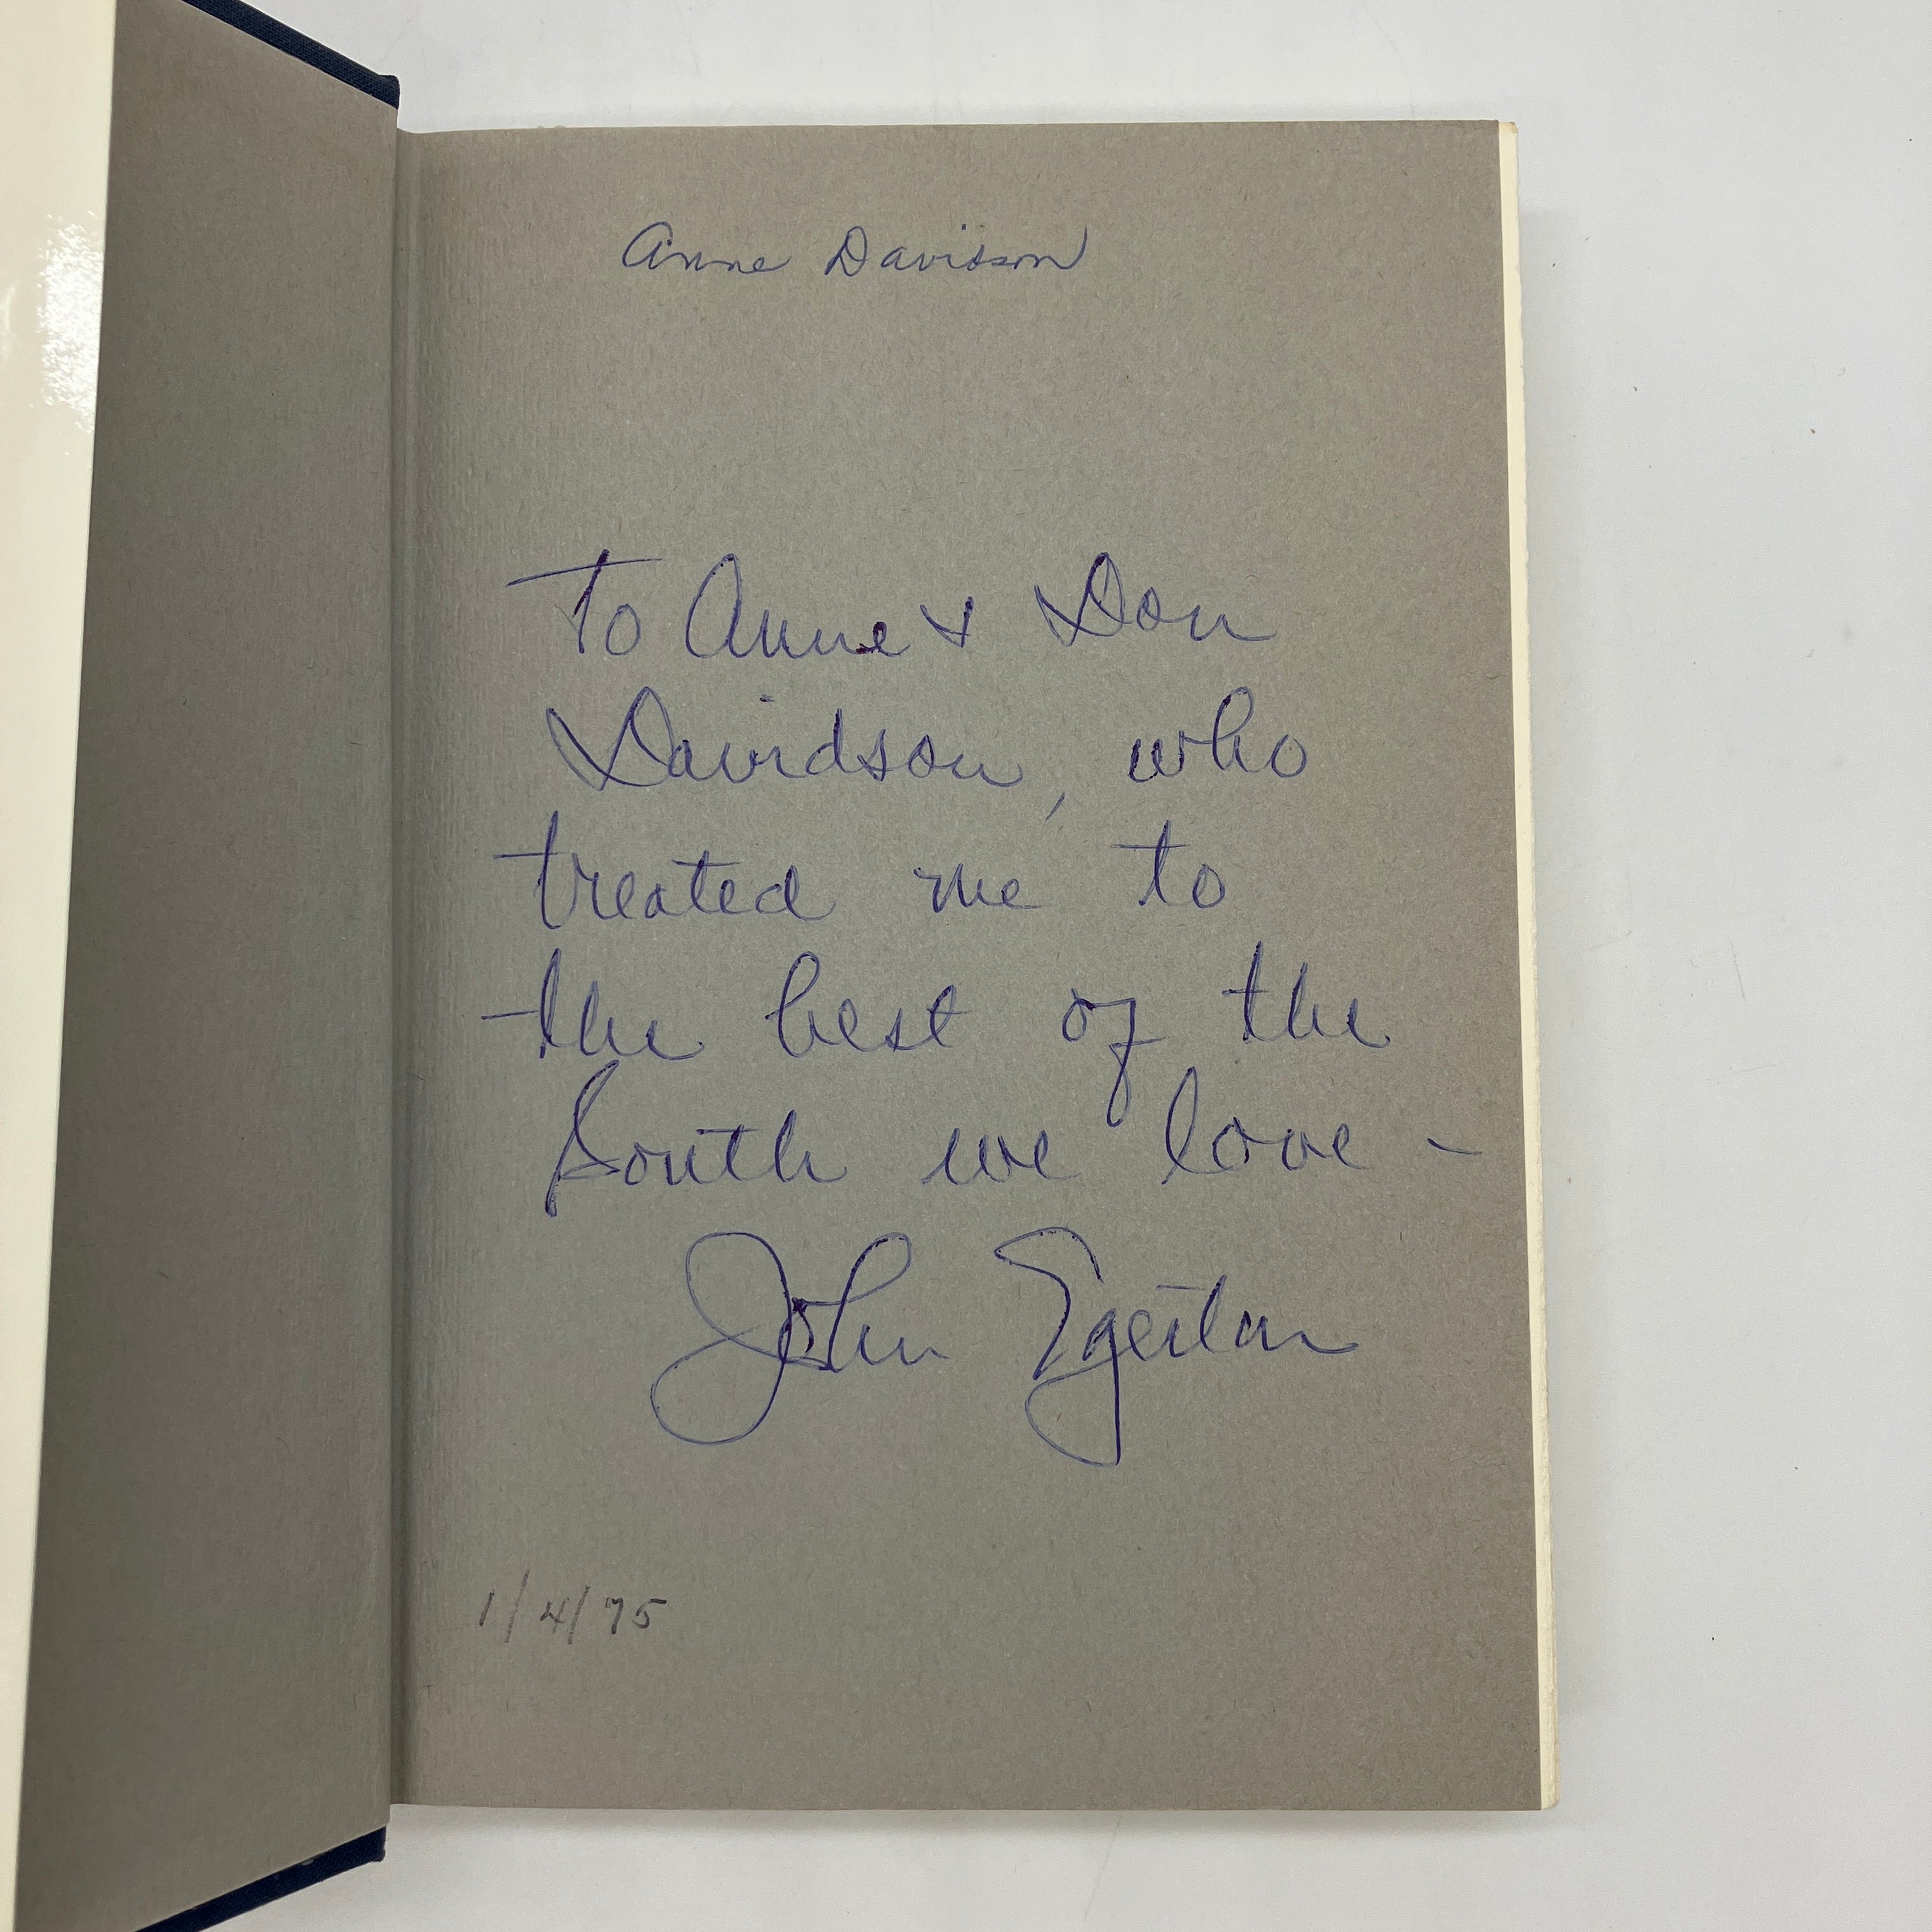 Anne Davidson
To Anne & Don
Davidson, who
treated me to
the best of the
South we love -
John Egerton
1/4/75